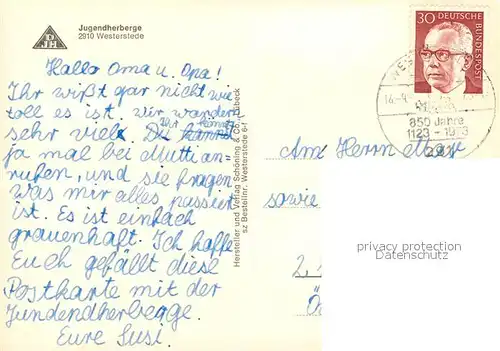 Jugendherberge
2910 Westerstede
DJH
Hallo Oma u. Opa!
Ihr wißt gar nicht wie
toll es ist. Wir wandern
sehr viel. Ihr könnt
ja mal bei Mutti an-
rufen, und sie fragen
was mir alles passiert
ist. Es ist einfach
grauenhaft. Ich hoffe
Euch gefällt diese
Postkarte mit der
Jundendherberge.
Eure Susi.
Hersteller und Verlag Schöning & Co., Lübeck
sz Bestellnr. Westerstede 64
30 DEUTSCHE BUNDESPOST
850 Jahre
1123 - 1973
2910
Am Herrn
sowie
2.
privacy protection
Datenschutz